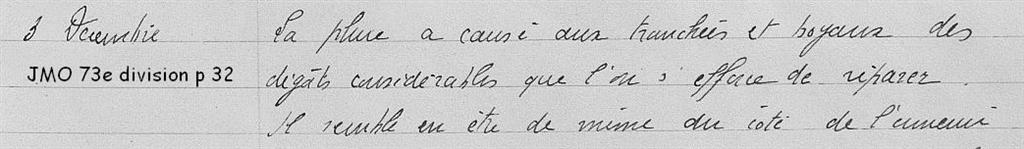 3 Décembre La pluie a causé aux tranchées et boyaux des
JMO 73e division p 32 dégâts considérables que l'on s'efforce de réparer.
Il semble en être de même du côté de l'ennemi